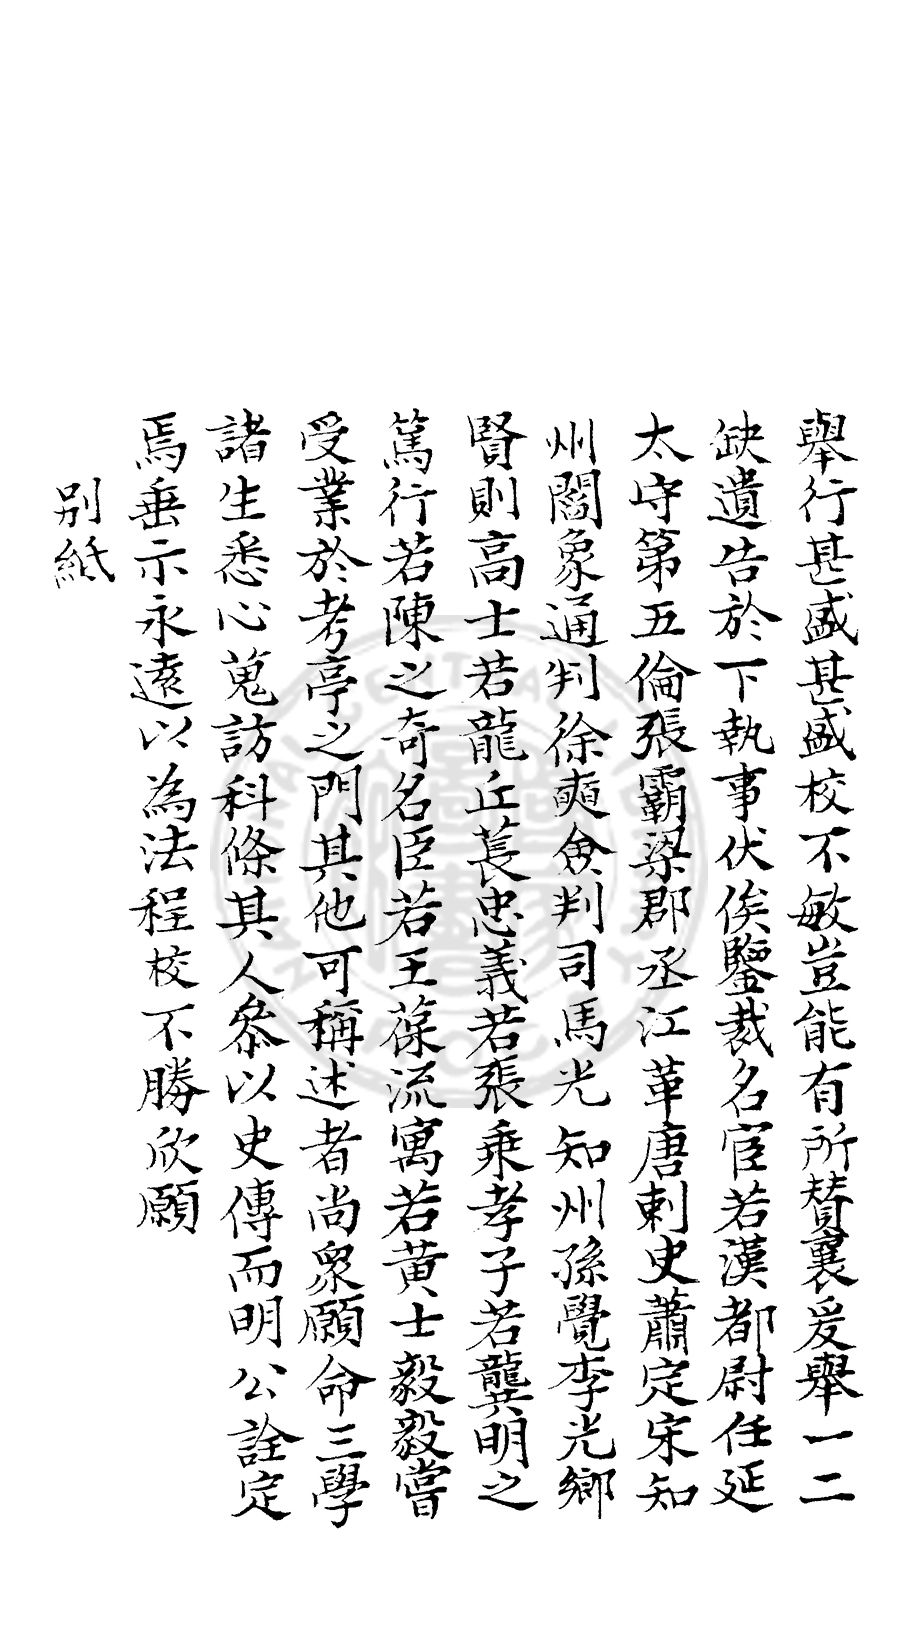 舉行甚盛甚盛校不敏豈能有所贊襄爰舉一二
缺遺告於下執事伏俟鑒裁名宦若漢都尉任延
太守第五倫張霸梁郡丞江革唐刺史蕭定宋知
州閻象通判徐奭僉判司馬光知州孫覺李光鄉
賢則高士若龍丘萇忠義若張乘孝子若龔明之
篤行若陳之奇名臣若王葆流寓若黃士毅毅嘗
受業於考亭之門其他可稱述者尚衆願命三學
諸生悉心蒐訪科條其人叅以史傳而明公詮定
焉垂示永遠以為法程校不勝欣願
別紙